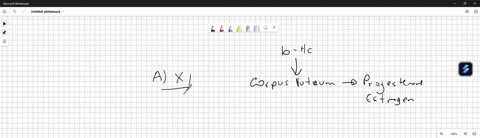 Microsoft Whiteboard
Untitled whiteboard
b-Hc
A) X
Corpus luteum → Progesterone
Estrogen